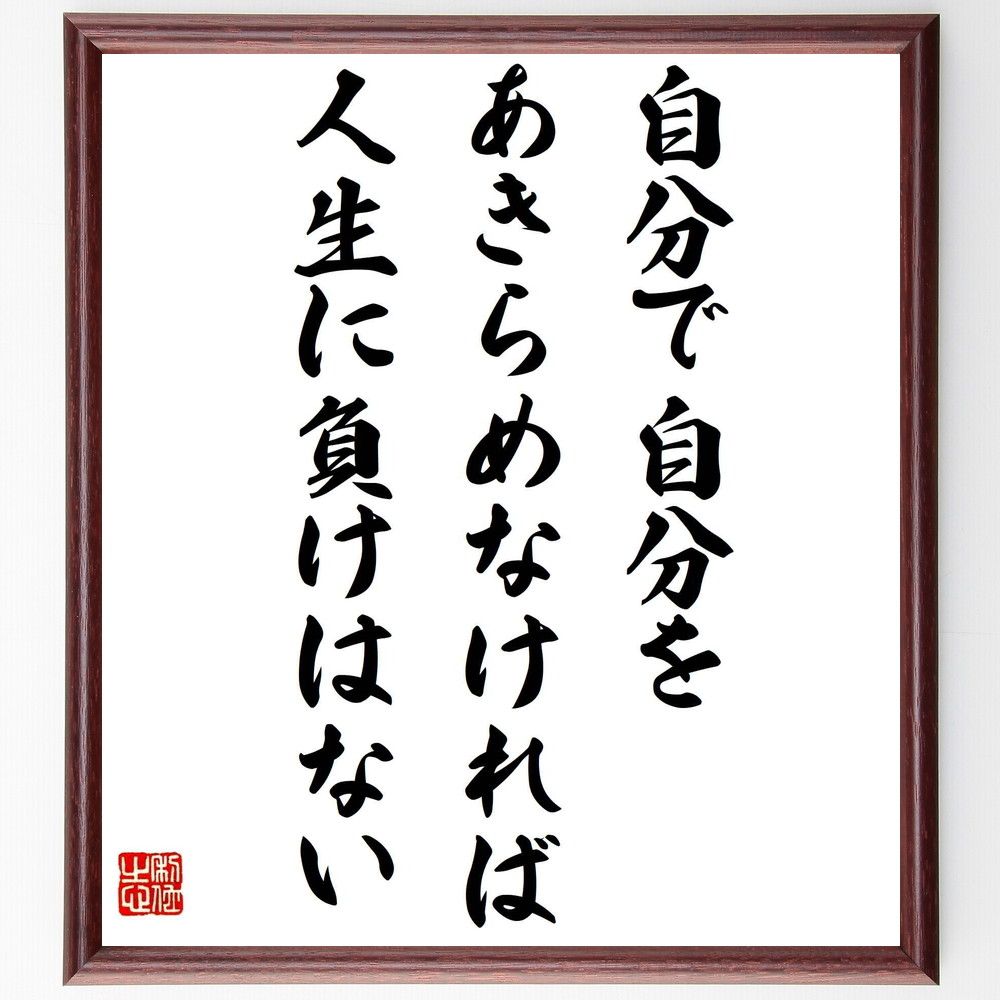 自分で自分を
あきらめなければ
人生に負けはない